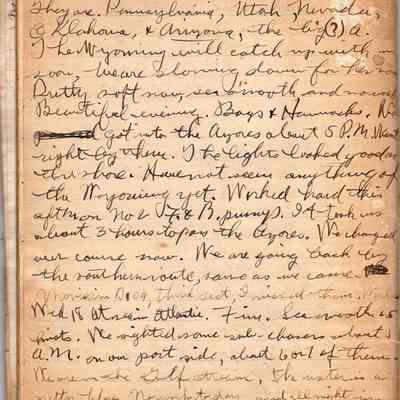 They are. Pennsylvania, Utah, Nevada,
Oklahoma, & Arizona, the big (?) A.
The Wyoming will catch up with us
soon, we are slowing down for her now
Pretty soft now, sea smooth and no
Beautiful evening. Bags & Hammocks.
got into the Azores about 5 P.M. Went
right by them. The lights looked good on
the shore. Have not seen anything of
the Wyoming yet. Worked hard this
afternoon No 2 F. & B. pumps. It took us
about 3 hours to pass the Azores. We changed
our course now. We are going back by
the southern route, same as we came.
Provision Dieg, third sect, I missed them.
Wed 18 At sea in Atlantic. Fine. Sea smooth
knots. We sighted some sub-chasers about
A.M. on our port side, about 6 or 7 of them.
We are in the Gulf stream, the water is a